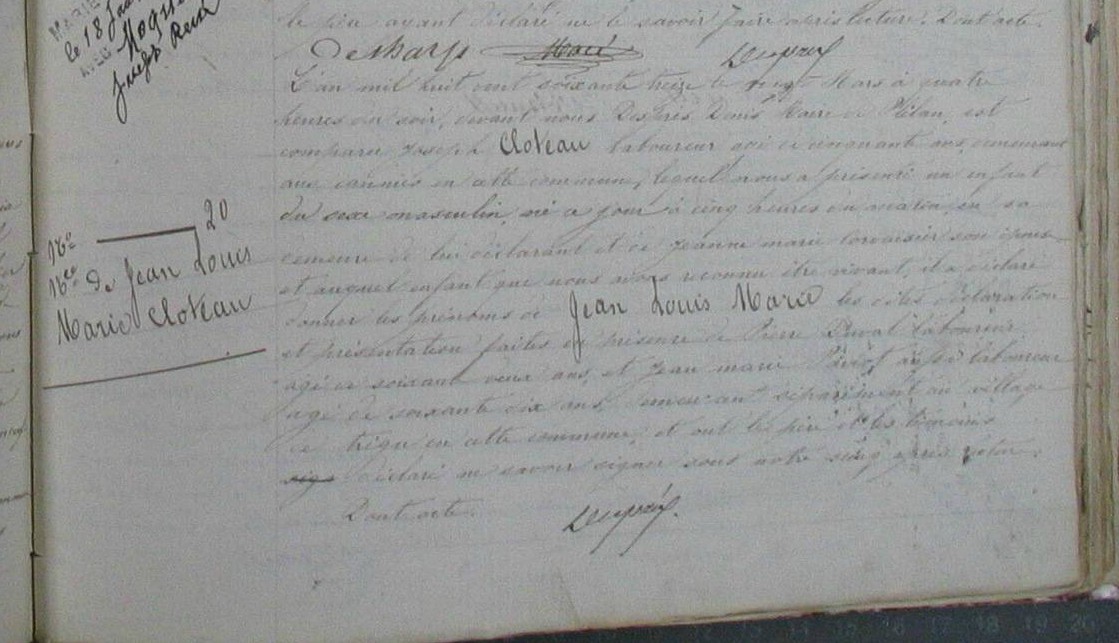 le père ayant déclaré ne le savoir faire après lecture. Dont acte.
Desharp Macé Despréz
MARIE
le 18 Ja
AVEC
Joseph
L'an mil huit cent soixante treize le vingt Mars à quatre
heures du soir, devant nous Desprès Denis Maire de Plélan, est
comparu Joseph Cloteau laboureur agé de cinquante ans, demeurant
aux cannées en cette commune, lequel nous a présenté un enfant
du sexe masculin né ce jour à cinq heures du matin, en sa
demeure de lui déclarant et de Jeanne marie Corvaisier son épouse
et auquel enfant que nous avons reconnu être vivant, il a déclaré
donner les prénoms de Jean Louis Marie les dites déclaration
et présentation faites en présence de Pierre Duval laboureur
agé de soixante deux ans, et Jean marie aussi laboureur
agé de soixante dix ans, demeurant séparément au village
de trégu en cette commune, et ont le père et les témoins
sign déclaré ne savoir signer sous notre seing après lecture.
Dont acte. Desprèz
20
No
Nce de Jean Louis
Marie Cloteau